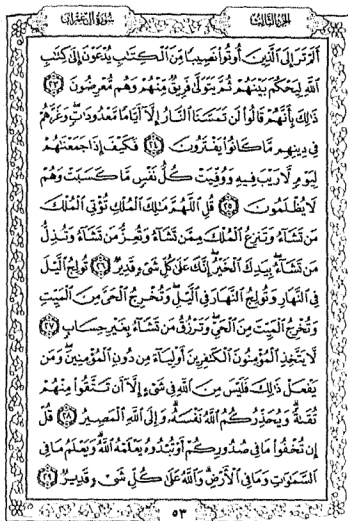 سورة آل عمران
الجزء الثالث
ألم تر إلى الذين أوتوا نصيبا من الكتاب يدعون إلى كتاب
الله ليحكم بينهم ثم يتولى فريق منهم وهم معرضون ٢٣
ذلك بأنهم قالوا لن تمسنا النار إلا أياما معدودات وغرهم
في دينهم ما كانوا يفترون ٢٤ فكيف إذا جمعناهم
ليوم لا ريب فيه ووفيت كل نفس ما كسبت وهم
لا يظلمون ٢٥ قل اللهم مالك الملك تؤتي الملك
من تشاء وتنزع الملك ممن تشاء وتعز من تشاء وتذل
من تشاء بيدك الخير إنك على كل شيء قدير ٢٦ تولج اليل
في النهار وتولج النهار في اليل وتخرج الحي من الميت
وتخرج الميت من الحي وترزق من تشاء بغير حساب ٢٧
لا يتخذ المؤمنون الكافرين أولياء من دون المؤمنين ومن
يفعل ذلك فليس من الله في شيء إلا أن تتقوا منهم
تقىة ويحذركم الله نفسه وإلى الله المصير ٢٨ قل
إن تخفوا ما في صدوركم أو تبدوه يعلمه الله ويعلم ما في
السماوات وما في الأرض والله على كل شيء قدير ٢٩
٥٣